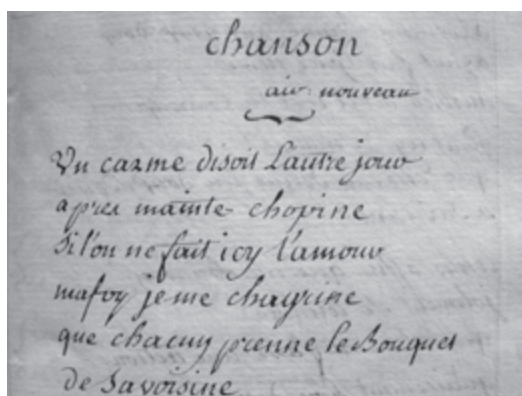 chanson
air nouveau
Un carme disoit L'autre jour
apres mainte chopine
Si l'on ne fait icy l'amour
mafoy je me chagrine
que chacun prenne le Bouquet
de Savoisine